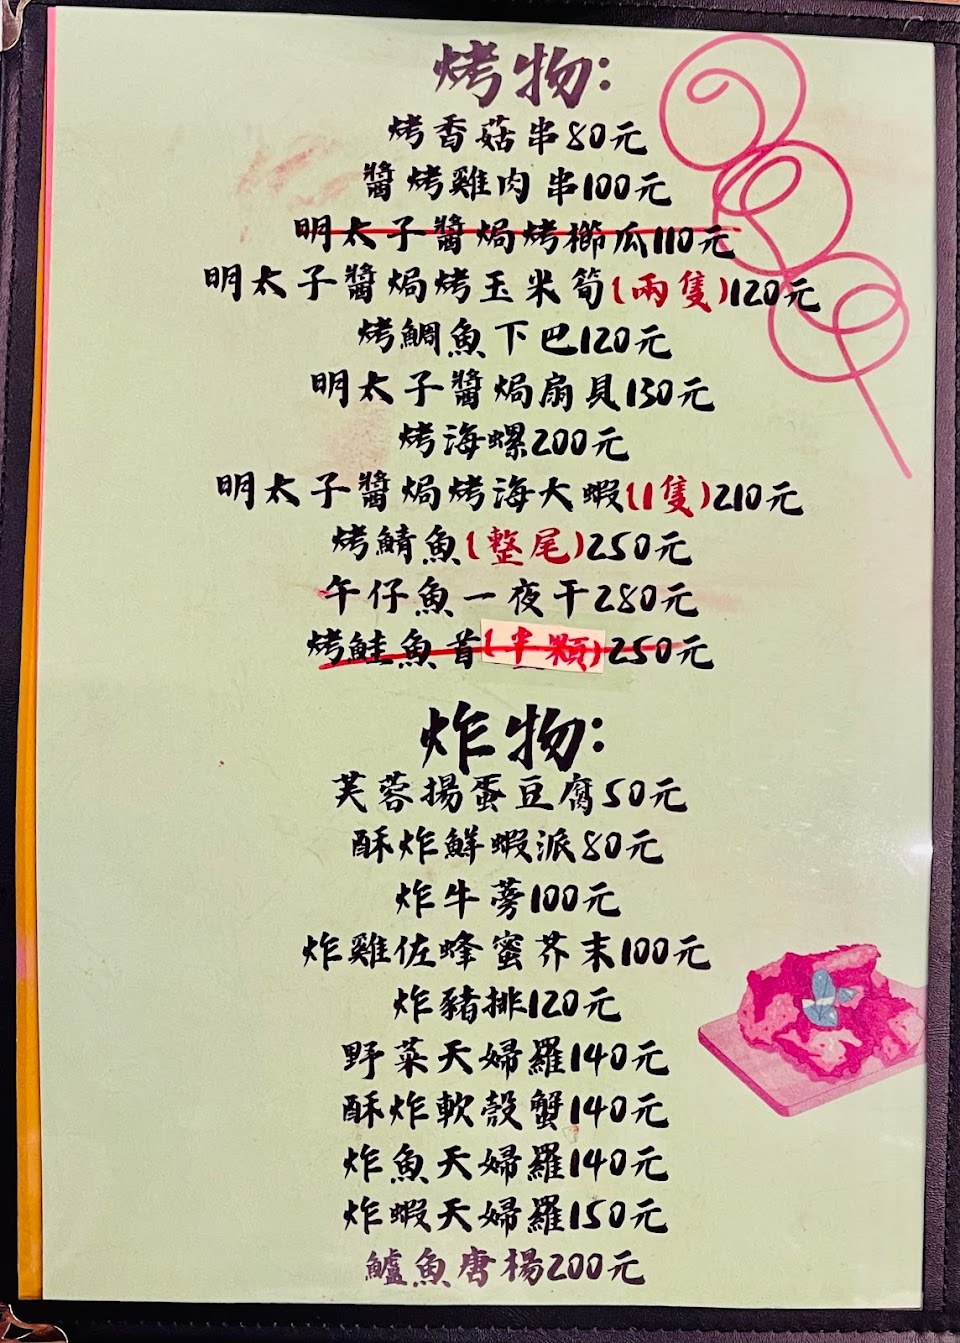 烤物:
烤香菇串80元
醬烤雞肉串100元
明太子醬焗烤櫛瓜110元
明太子醬焗烤玉米筍(兩隻)120元
烤鯛魚下巴120元
明太子醬焗扇貝130元
烤海螺200元
明太子醬焗烤海大蝦(1隻)210元
烤鯖魚(整尾)250元
午仔魚一夜干280元
烤鮭魚首(半顆)250元
炸物:
芙蓉揚蛋豆腐50元
酥炸鮮蝦派80元
炸牛蒡100元
炸雞佐蜂蜜芥末100元
炸豬排120元
野菜天婦羅140元
酥炸軟殼蟹140元
炸魚天婦羅140元
炸蝦天婦羅150元
鱸魚唐楊200元